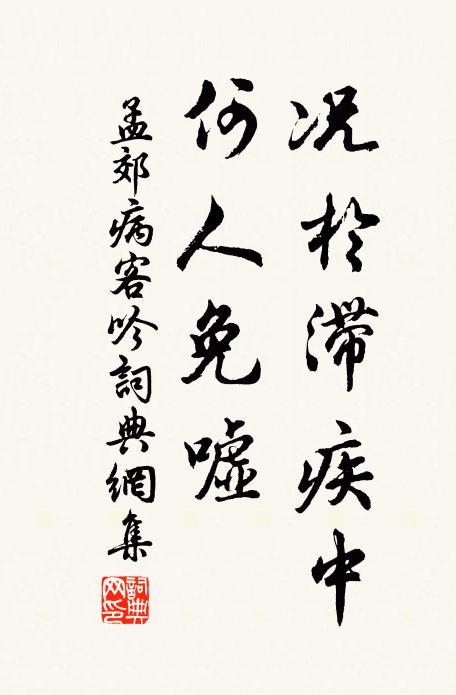 况於滯疾中
何人免噓
孟郊病客吟詞典網集
詞典網印